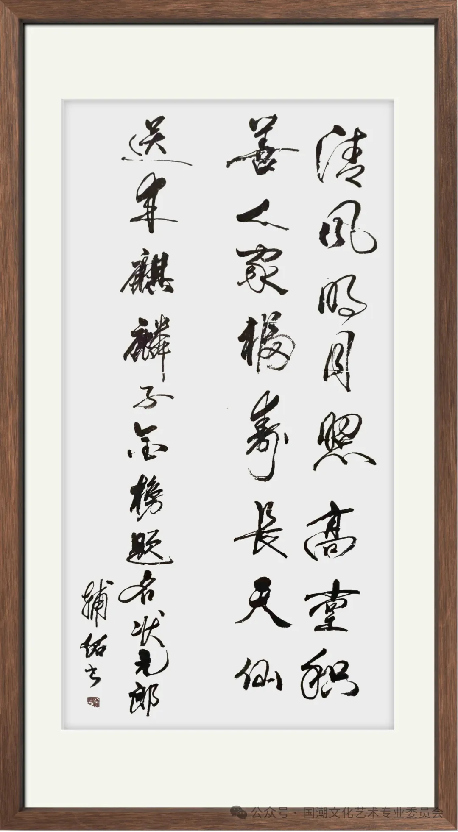 清风明月照高堂积
善人家福寿長天仙
送来麒麟子金榜题名状元郎
辅书
公众号 · 国潮文化艺术专业委员会